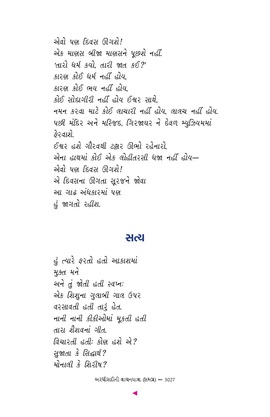 એવો પણ દિવસ ઊગશે!
એક માણસ બીજા માણસને પૂછશે નહીં.
'તારો ધર્મ કયો, તારી જાત કઈ?'
કારણ કોઈ ધર્મ નહીં હોય,
કારણ કોઈ ભય નહીં હોય,
કોઈ સોદાગીરી નહીં હોય ઈશ્વર સાથે,
નમન કરવા માટે કોઈ લાચારી નહીં હોય, લાલચ નહીં હોય.
પછી મંદિર અને મસ્જિદ, ગિરજાઘર ને દેવળ મ્યુઝિયમમાં
ફેરવાશે.
ઈશ્વર હશે ગૌરવથી ટટ્ટાર ઊભો રહેનારો,
એના હાથમાં કોઈ એક લોહીતરસી ધજા નહીં હોય—
એવો પણ દિવસ ઊગશે!
એ દિવસના ઊગતા સૂરજને જોવા
આ ગાઢ અંધકારમાં પણ
હું જાગતો રહીશ.
સત્ય
હું ત્યારે ફરતો હતો આકાશમાં
મુક્ત મને
અને તું જોતી હતી સ્વપ્નઃ
એક શિશુના ગુલાબી ગાલ ઉપર
વરસાવતી હતી તારું હેત.
નાની નાની કીકીઓમાં મૂકતી હતી
તારા શૈશવનાં ગીત.
વિચારતી હતીઃ કોણ હશે એ?
સુજાતા કે સિદ્ધાર્થ?
મોનાલી કે શિરીષ?
અરધીસદીની વાચનયાત્રા (૧થી૫) — 3027